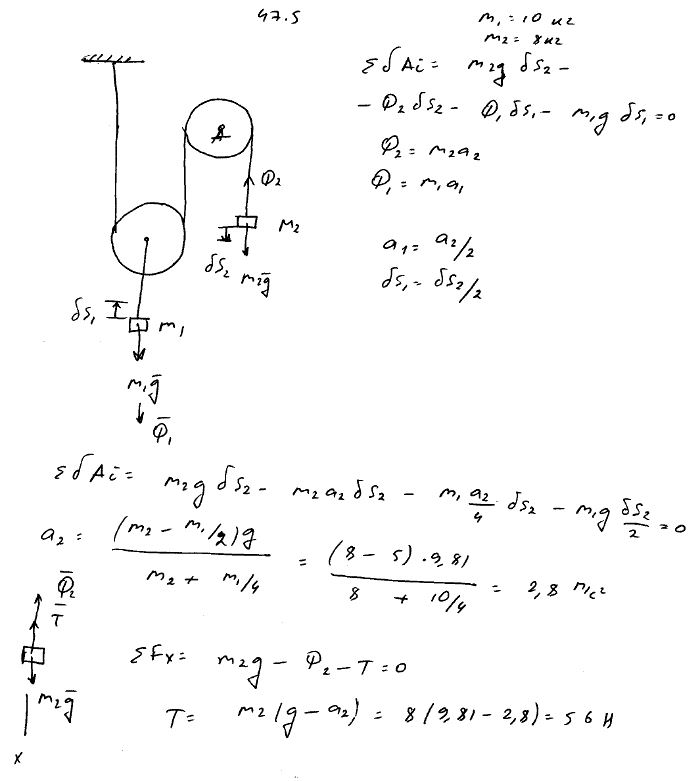 47.5
m₁ = 10 кг
m₂ = 8 кг
ΣδAi = m₂g δs₂ -
- Φ₂ δs₂ - Φ₁ δs₁ - m₁g δs₁ = 0
Φ₂ = m₂a₂
Φ₁ = m₁a₁
a₁ = a₂/2
δs₁ = δs₂/2
A
Φ₂
M₂
δS₂
m₂g̅
δs₁
m₁
m₁g̅
Φ̅₁
ΣδAi = m₂g δs₂ - m₂a₂ δs₂ - m₁ a₂/4 δs₂ - m₁g δs₂/2 = 0
a₂ = (m₂ - m₁/2)g / (m₂ + m₁/4) = (8 - 5) · 9,81 / (8 + 10/4) = 2,8 м/с²
Φ̅₂
T̅
m₂g̅
x
ΣFx = m₂g - Φ₂ - T = 0
T = m₂(g - a₂) = 8(9,81 - 2,8) = 56 Н